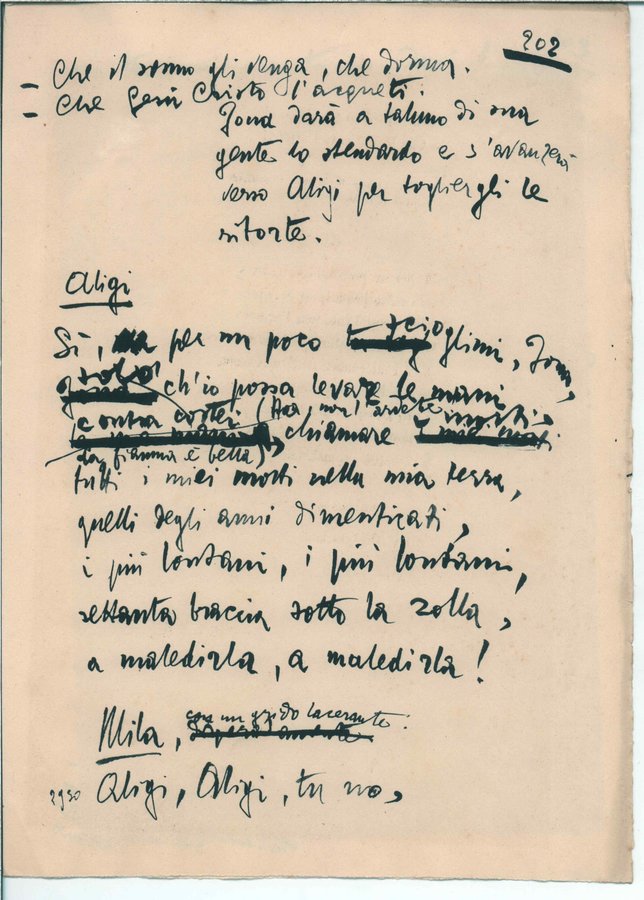 202
– Che il sonno gli venga, che dorma.
– Che Gesù Cristo l'acqueti.
Jona darà a taluno di sua
gente lo stendardo e s'avanzerà
verso Aligi per togliergli le
ritorte.
Aligi
Sì, per un poco scioglimi, Jona,
solo ch'io possa levare le mani
contra costei (Ma non l'ardete
chiamare i morti,
la fiamma è bella)
tutti i miei morti nella mia terra,
quelli degli anni dimenticati,
i più lontani, i più lontani,
settanta braccia sotto la zolla,
a maledirla, a maledirla!
Mila, con un grido lacerante:
2930 Aligi, Aligi, tu no,